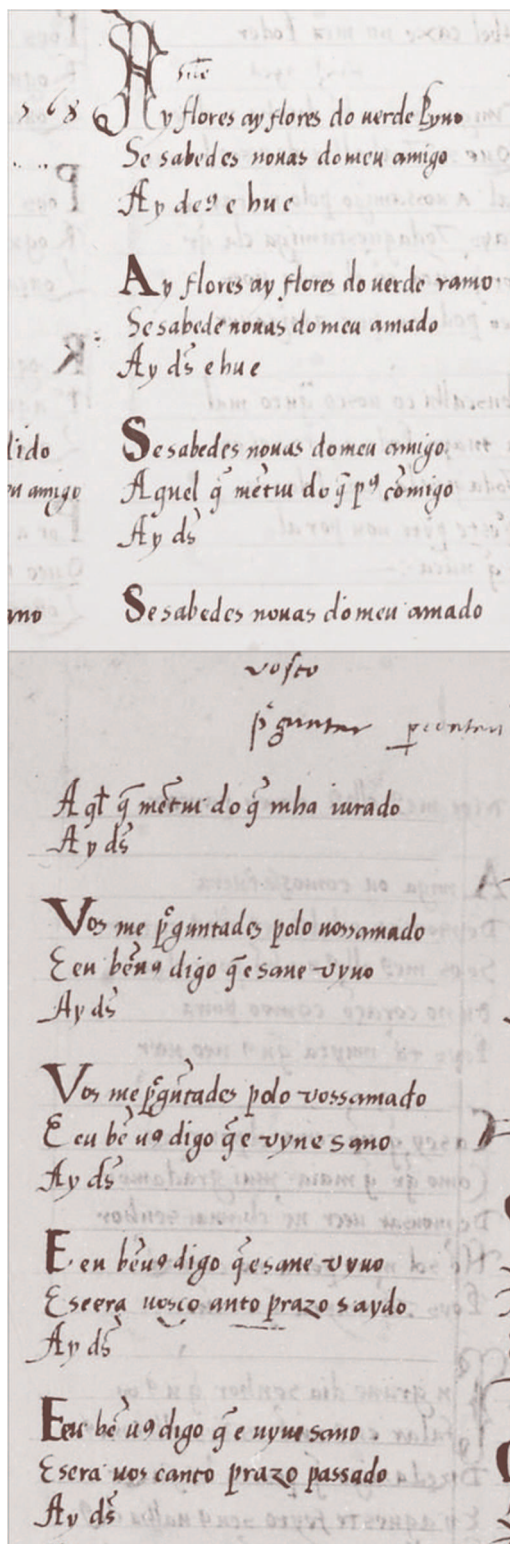 568
Ay flores ay flores do uerde pyno
Se sabedes nouas do meu amigo
Ay deꝰ e hu e
Ay flores ay flores do uerde ramo
Se sabede nouas do meu amado
Ay ds̃ e hu e
lido
Se sabedes nouas do meu amigo
u amigo
Aquel q̃ mẽtiu do q̃ pꝰ cõmigo
Ay ds̃
ano
Se sabedes nouas do meu amado
vosco
p̃guntar
A ql̃ q̃ mẽtiu do q̃ mha iurado
Ay ds̃
Vos me p̃guntades polo uossamado
E eu bẽ uꝰ digo q̃ e sane vyuo
Ay ds̃
Vos me p̃gũtades polo vossamado
E eu bẽ uꝰ digo q̃ e vyue sano
Ay ds̃
E eu bẽ uꝰ digo q̃ e sane vyuo
E seera uosco anto prazo saydo
Ay ds̃
E eu bẽ uꝰ digo q̃ e uyue sano
E sera uos canto prazo passado
Ay ds̃